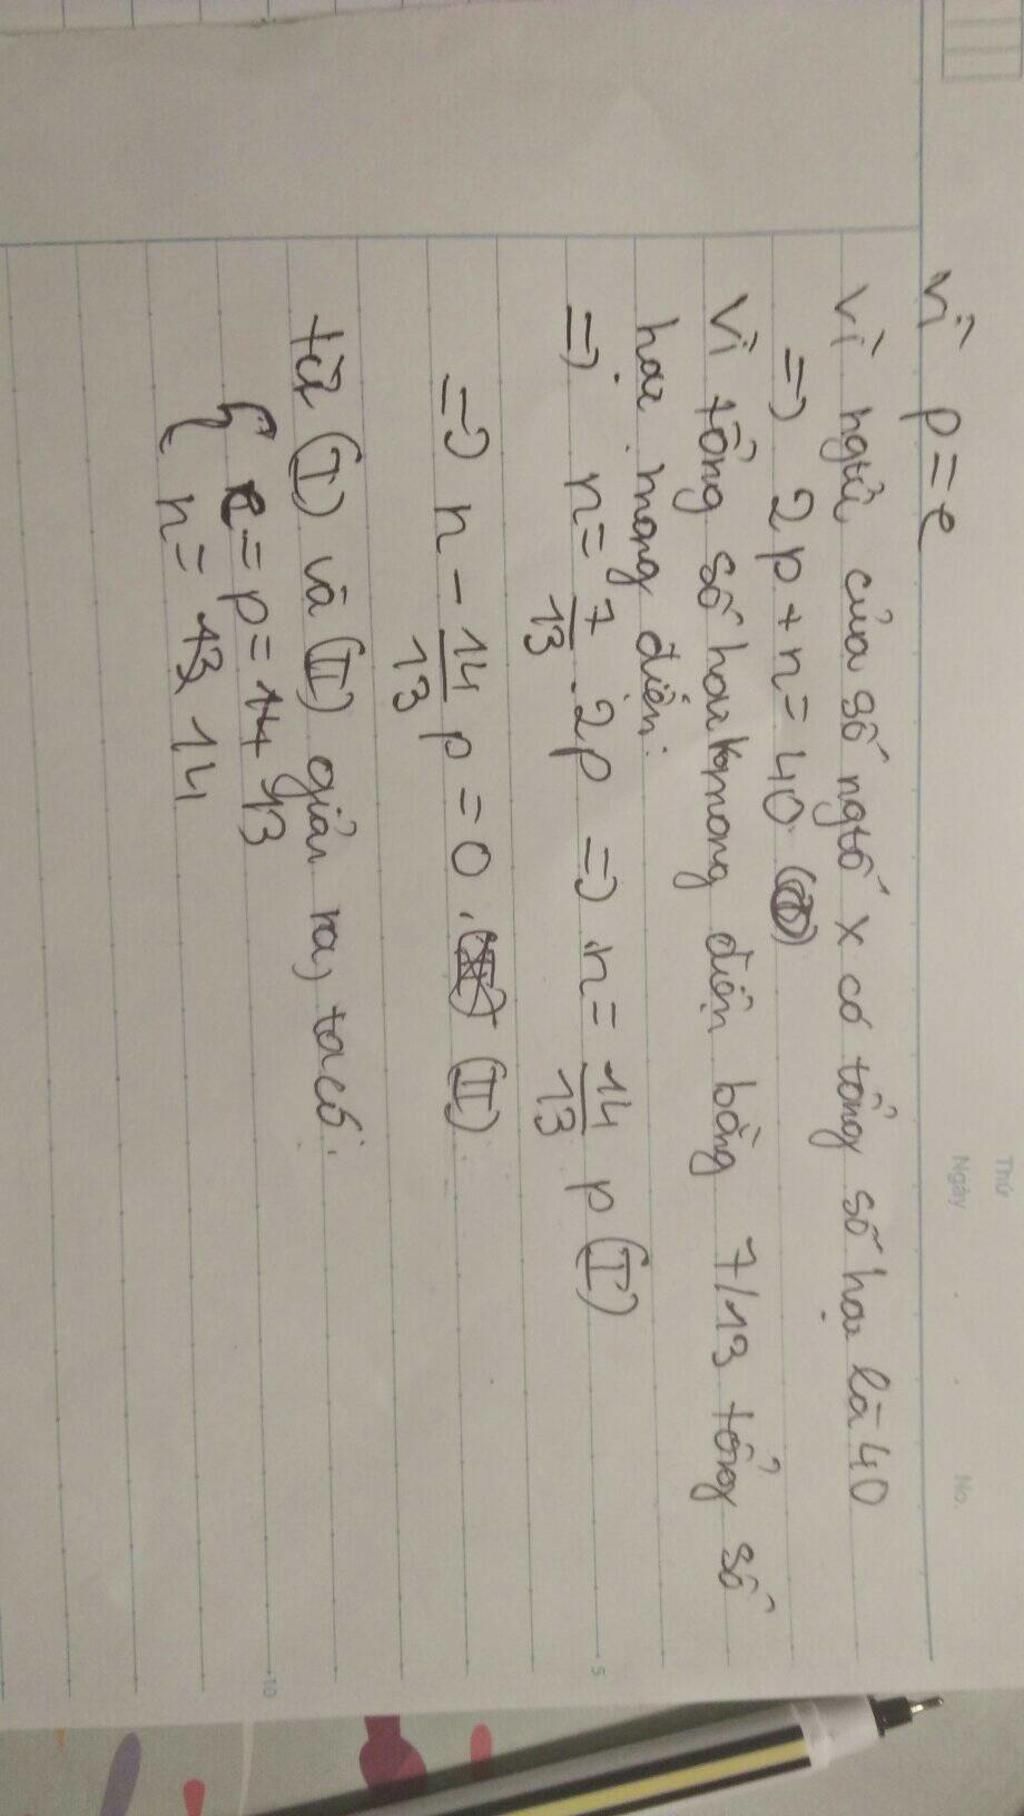 Thứ
Ngày
No.
Vì p = e
Vì ngtử của số ngtố x có tổng số hạt là 40
=> 2p + n = 40
Vì tổng số hạt k mang điện bằng 7/13 tổng số
hạt mang điện:
=> n = 7/13 . 2p => n = 14/13 p (I)
=> n - 14/13 p = 0 (II)
từ (I) và (II) giải ra, ta có:
{ e = p = 13
n = 14
5
10